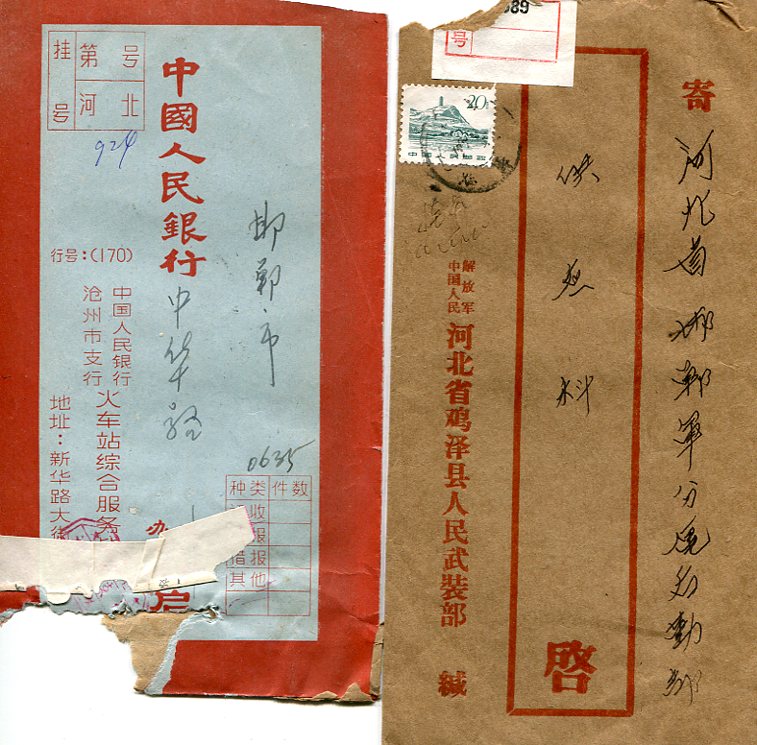 挂号
第 号
河北
924
中國人民銀行
行号:(170)
中国人民银行
沧州市支行
火车站综合服务
地址:新华路大街
邯郸市
中华路
0635
种类 件数
收
报
借报
其他
办
启
389
号
20
中国人民邮政
寄
河北省邯郸军分区后勤部
供应科
启
中国人民
解放军
河北省鸡泽县人民武装部 缄